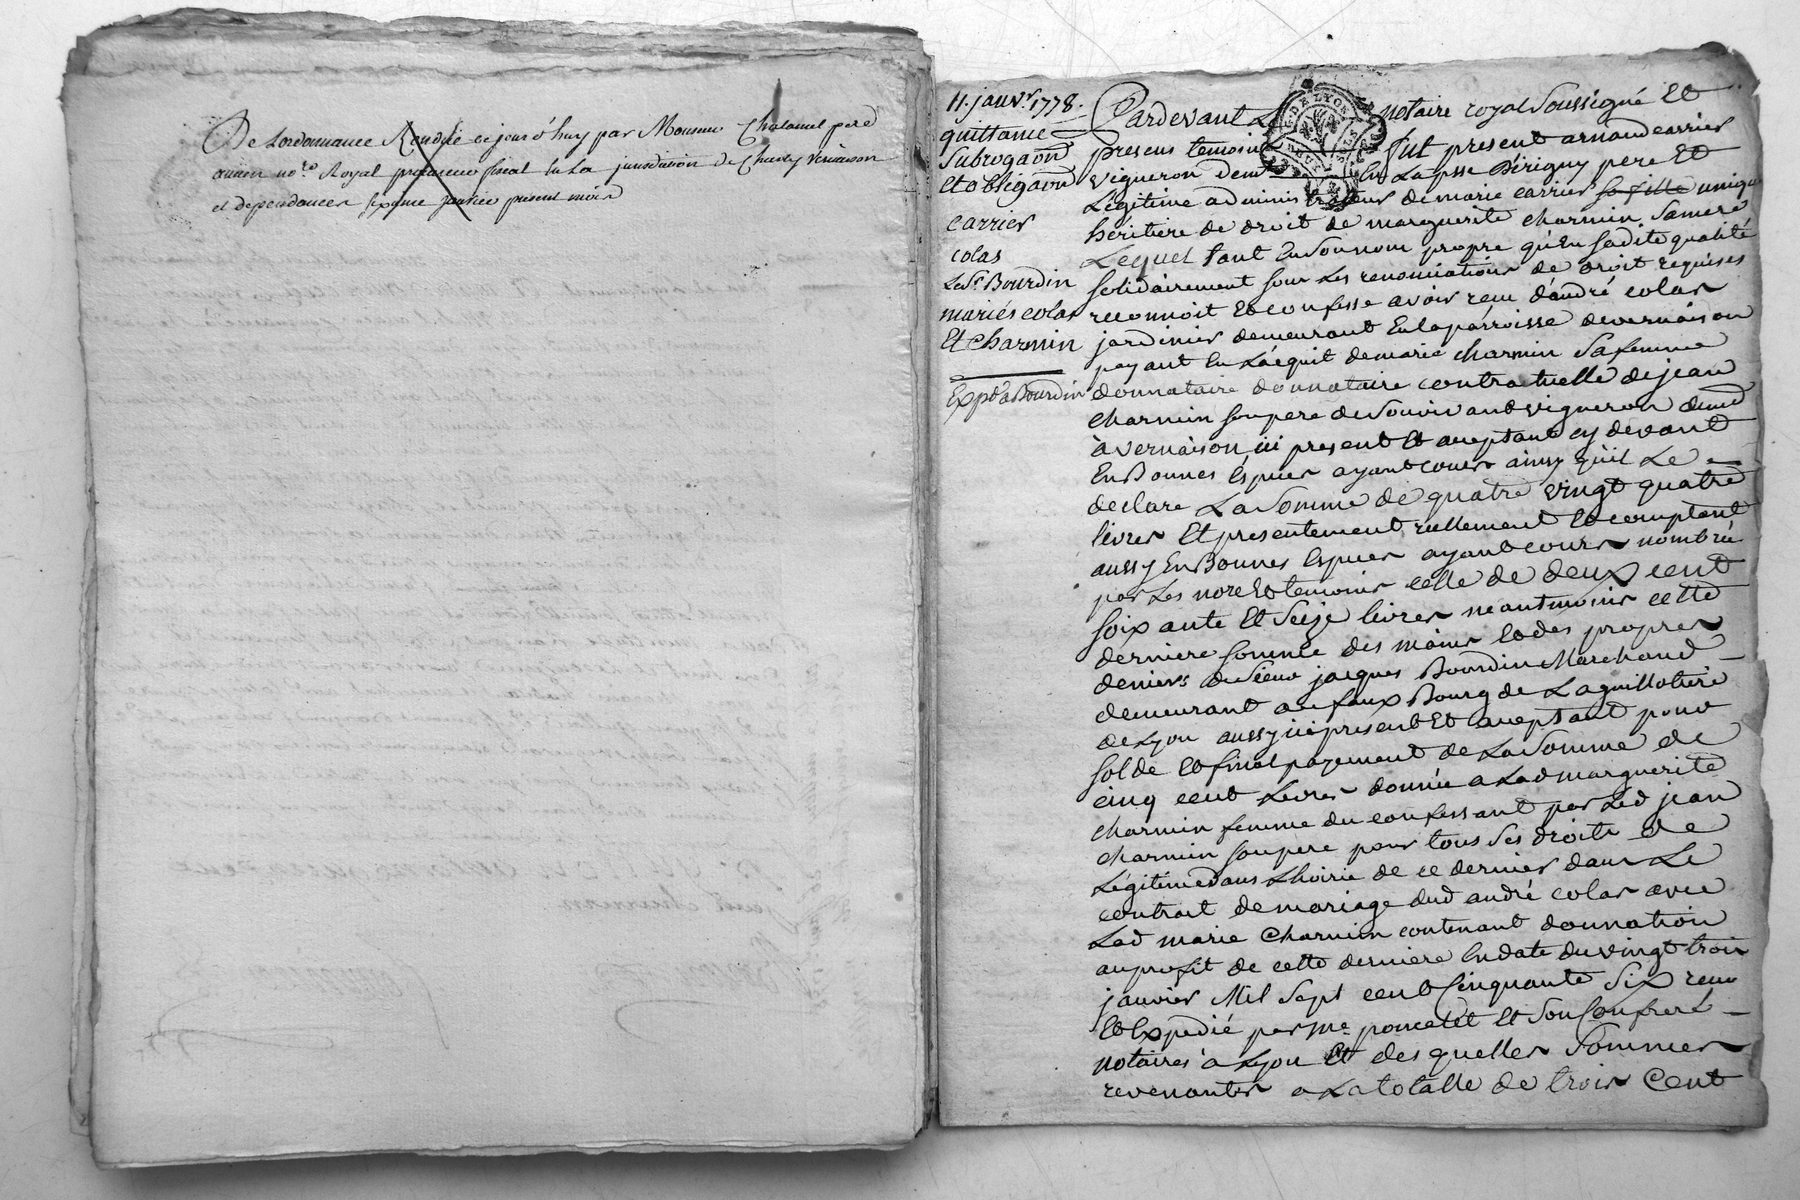 De Lordonnance Rendüe ce jour d'huy par Monsieur Chalamel pere
ancien no.re Royal procureur fiscal en La jurisdiction de Charly Vernaison
et dependances sixieme janvier present mois
11. janv.r 1778.
quittance
Subrogaon
Et obligaon
carrier
colas
Le S.r Bourdin
mariés colas
Et Charmin
Exp.d a Bourdin
Pardevant Le notaire royal Soussigné Et
presens temoins fut present arnaud carrier
vigneron dem.t En La psse Dirigny pere Et
Légitime administrateur de marie carrier sa fille unique
héritiere de droit de marguerite charmin Samere
Lequel tant En Son nom propre qu'En Sadite qualité
Solidairement Sous Les renonciations de droit requises
reconnoit Et confesse avoir reçu d'andré colas
jardinier demeurant En la parroisse de vernaison
payant En L'acquit de marie charmin Sa femme
donnataire donnataire contractuelle de jean
charmin Son pere de Son vivant vigneron demt
à vernaison ici present Et aceptant cy devant
En Bonnes Especes ayant cours ainsy qu'il Le
declare La Somme de quatre vingt quatre
livres Et presentement réellement Et comptant
aussy En Bonnes Especes ayant cours nombrée
par Les nore Et temoins celle de deux cent
Soixante Et Seize livres neantmoins cette
derniere Somme des mains Et des propres
deniers du Sieur jacques Bourdin Marchand
demeurant au faux Bourg de La guillotiere
de Lyon aussy ici present Et aceptant pour
Solde Et final payement de La Somme de
cinq cent Livres donnée a Lad marguerite
charmin femme du confessant par Led jean
charmin Son pere pour tous Ses droits de
Légitime dans L'hoirie de ce dernier dans Le
contrat de mariage dud andré colas avec
Lad marie Charmin contenant donnation
au profit de cette derniere En date du vingt trois
janvier Mil Sept cent Cinquante Six reçu
Et Expedié par Me poncetet Et Son Confrere
notaires à Lyon Et des quelles Sommes
revenantes a La totalle de trois Cent